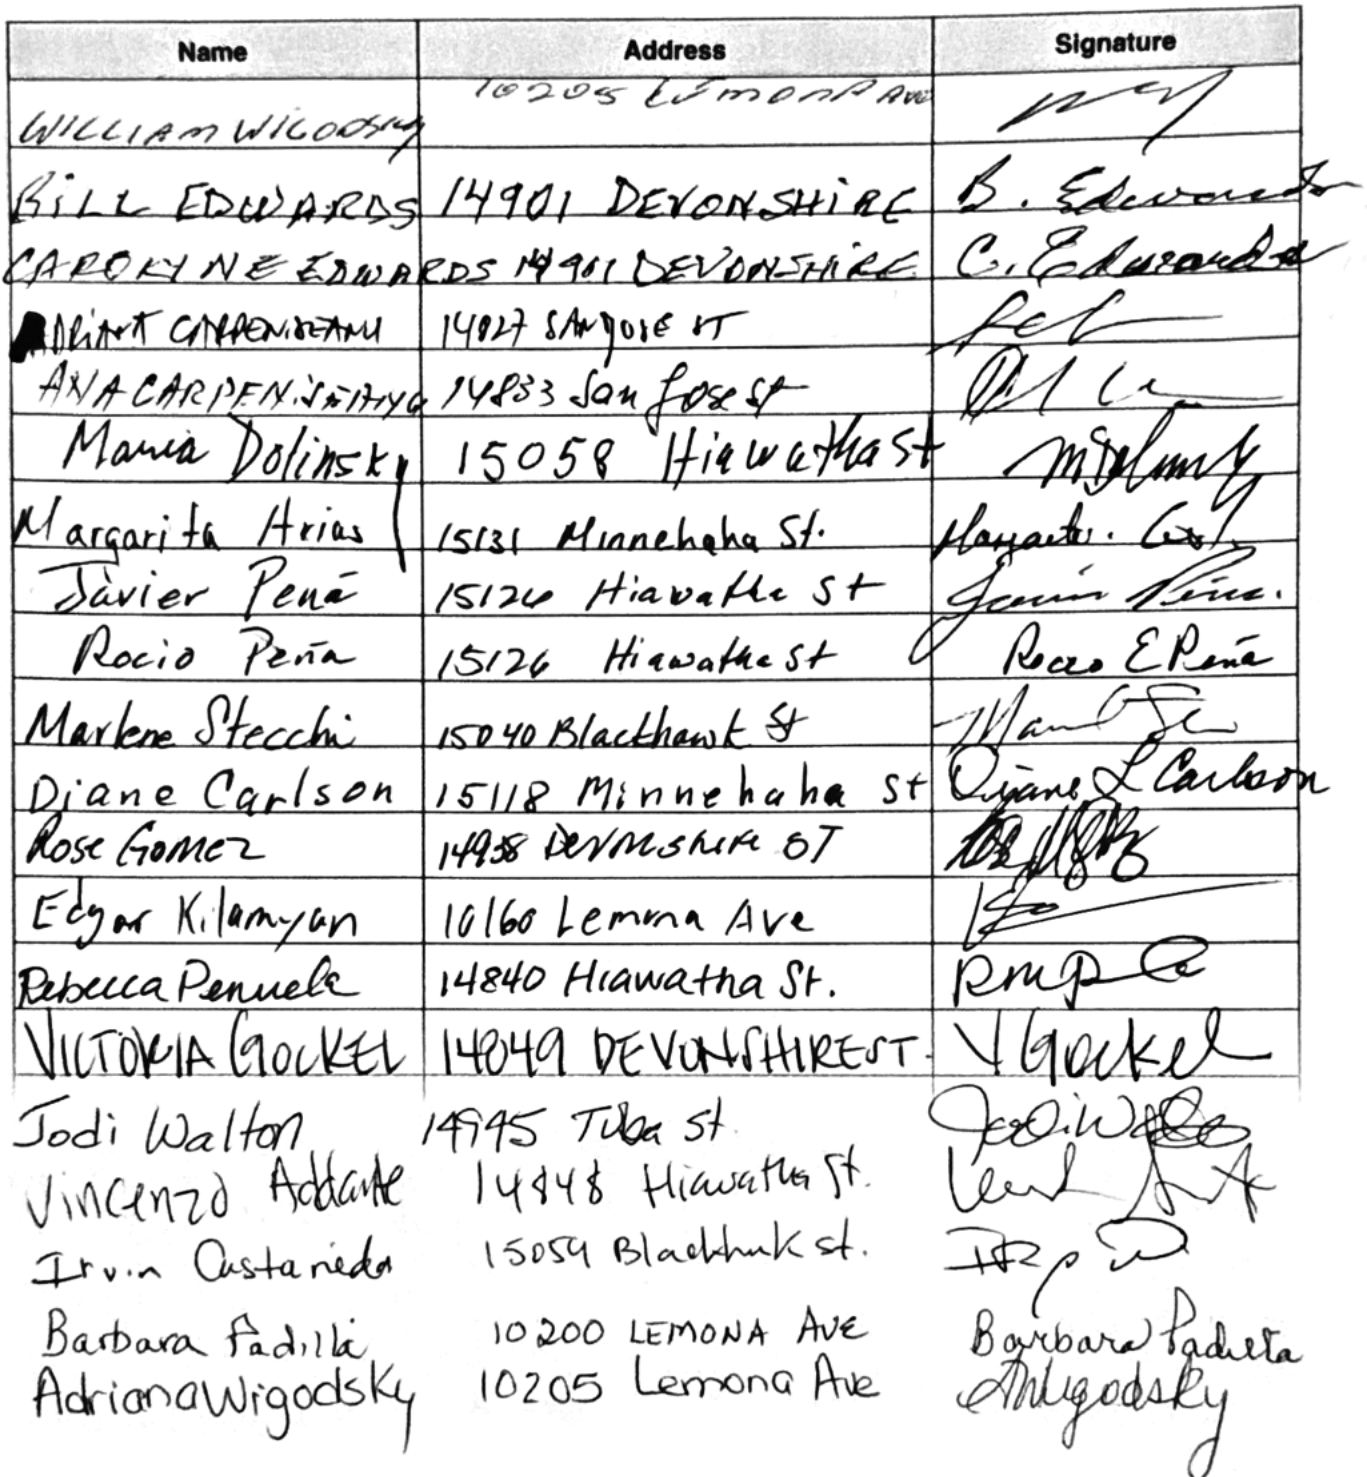 Name Address Signature
WILLIAM WIGODSKY 10205 LEMONA AVE
BILL EDWARDS 14901 DEVONSHIRE B. Edwards
CAROLYNE EDWARDS 14901 DEVONSHIRE C. Edwards
14827 SAN JOSE ST
ANA 14833 San Jose St
Maria Dolinsky 15058 Hiawatha St
Margarita Arias 15131 Minnehaha St.
Javier Pená 15126 Hiawatha St Javier Peña.
Rocio Peña 15126 Hiawatha St Rocio E Peña
Marlene Stecchi 15040 Blackhawk St
Diane Carlson 15118 Minnehaha St Diane L Carlson
Rose Gomez 14938 Devonshire ST
Edgar Kilamyan 10160 Lemona Ave
Rebecca Penuela 14840 Hiawatha St.
VICTORIA GOCKEL 14849 DEVONSHIRE ST. V Gockel
Jodi Walton 14945 Tuba st Jodi Walton
Vincenzo Addante 14848 Hiawatha St.
Irvin Castaneda 15059 Blackhwk st.
Barbara Padilla 10200 LEMONA AVE Barbara Padilla
Adriana Wigodsky 10205 Lemona Ave AWigodsky